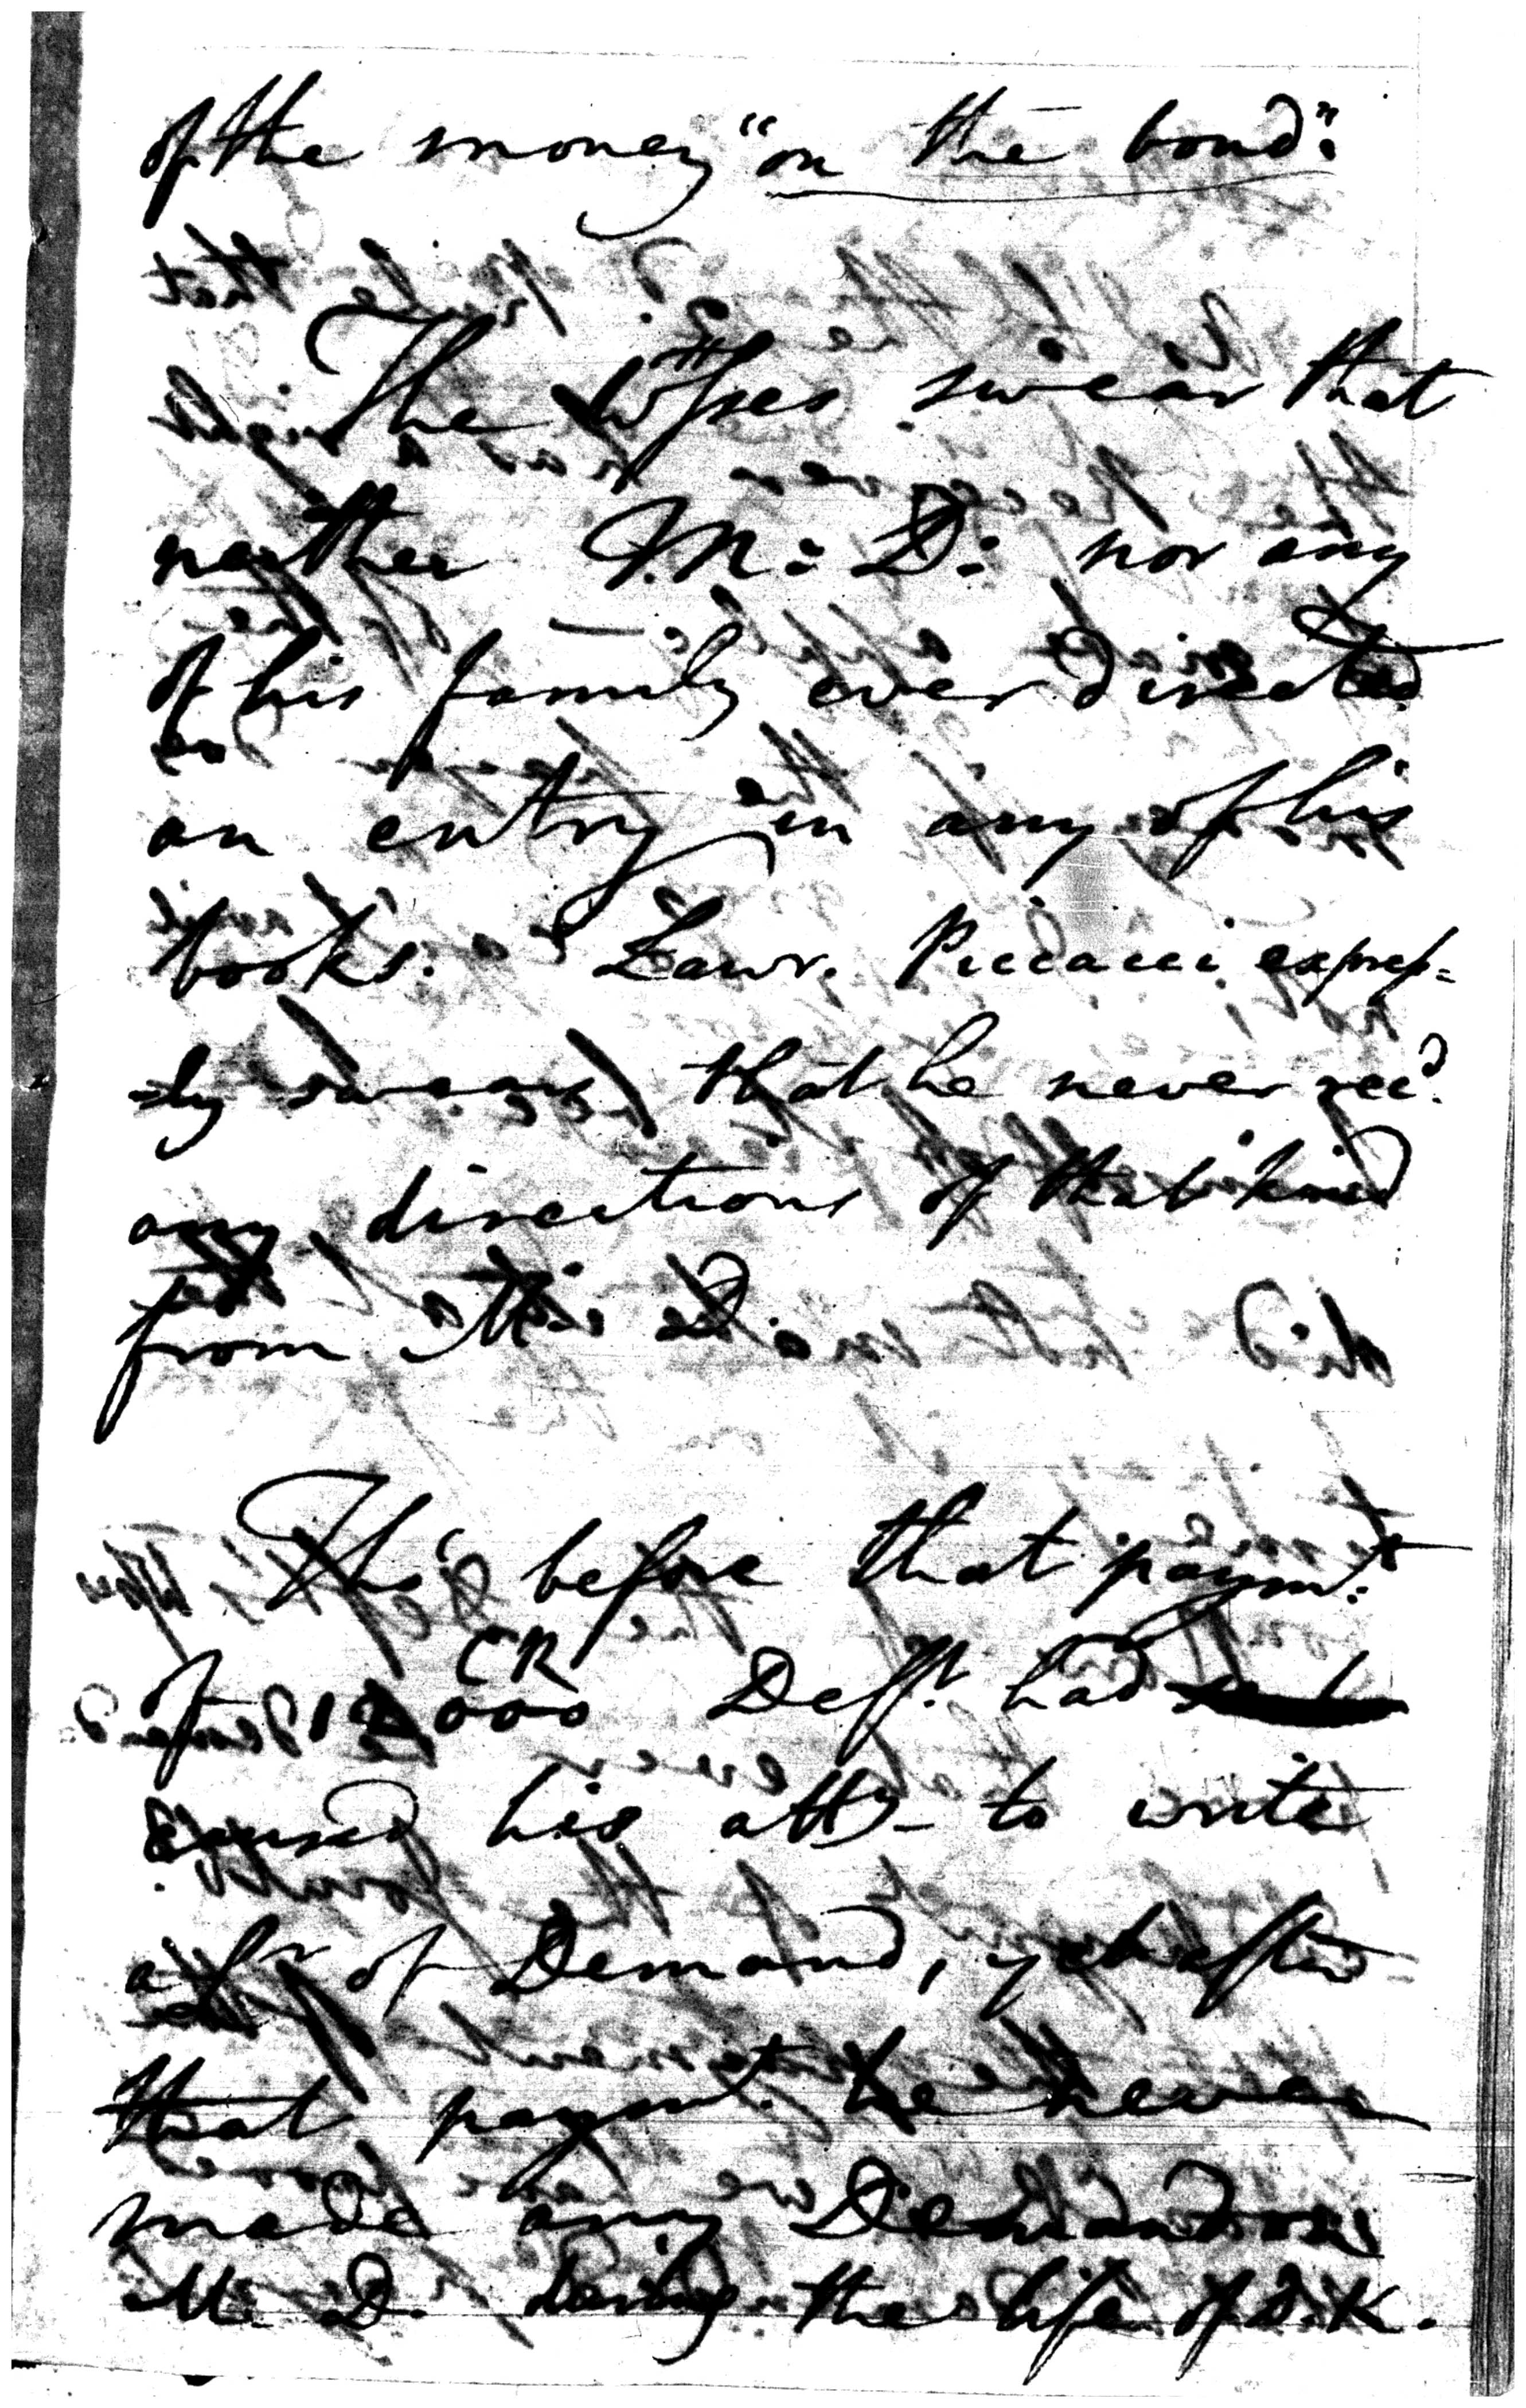 of the money "on the bond".
The 2 Wittsses swear that
neither M: D: nor any
of his family ever directed
an entry in any of his
books. Lawr. Piccacci expres=
=ly swears that he never recd.
any directions of that kind
from M: D.
Tho' before that paymt.
of 12000 CR Defft. had
caused his atty to write
a lr of Demand, yet after
that paymt. he never
made any Demand on
M. D. during the life of D. K.